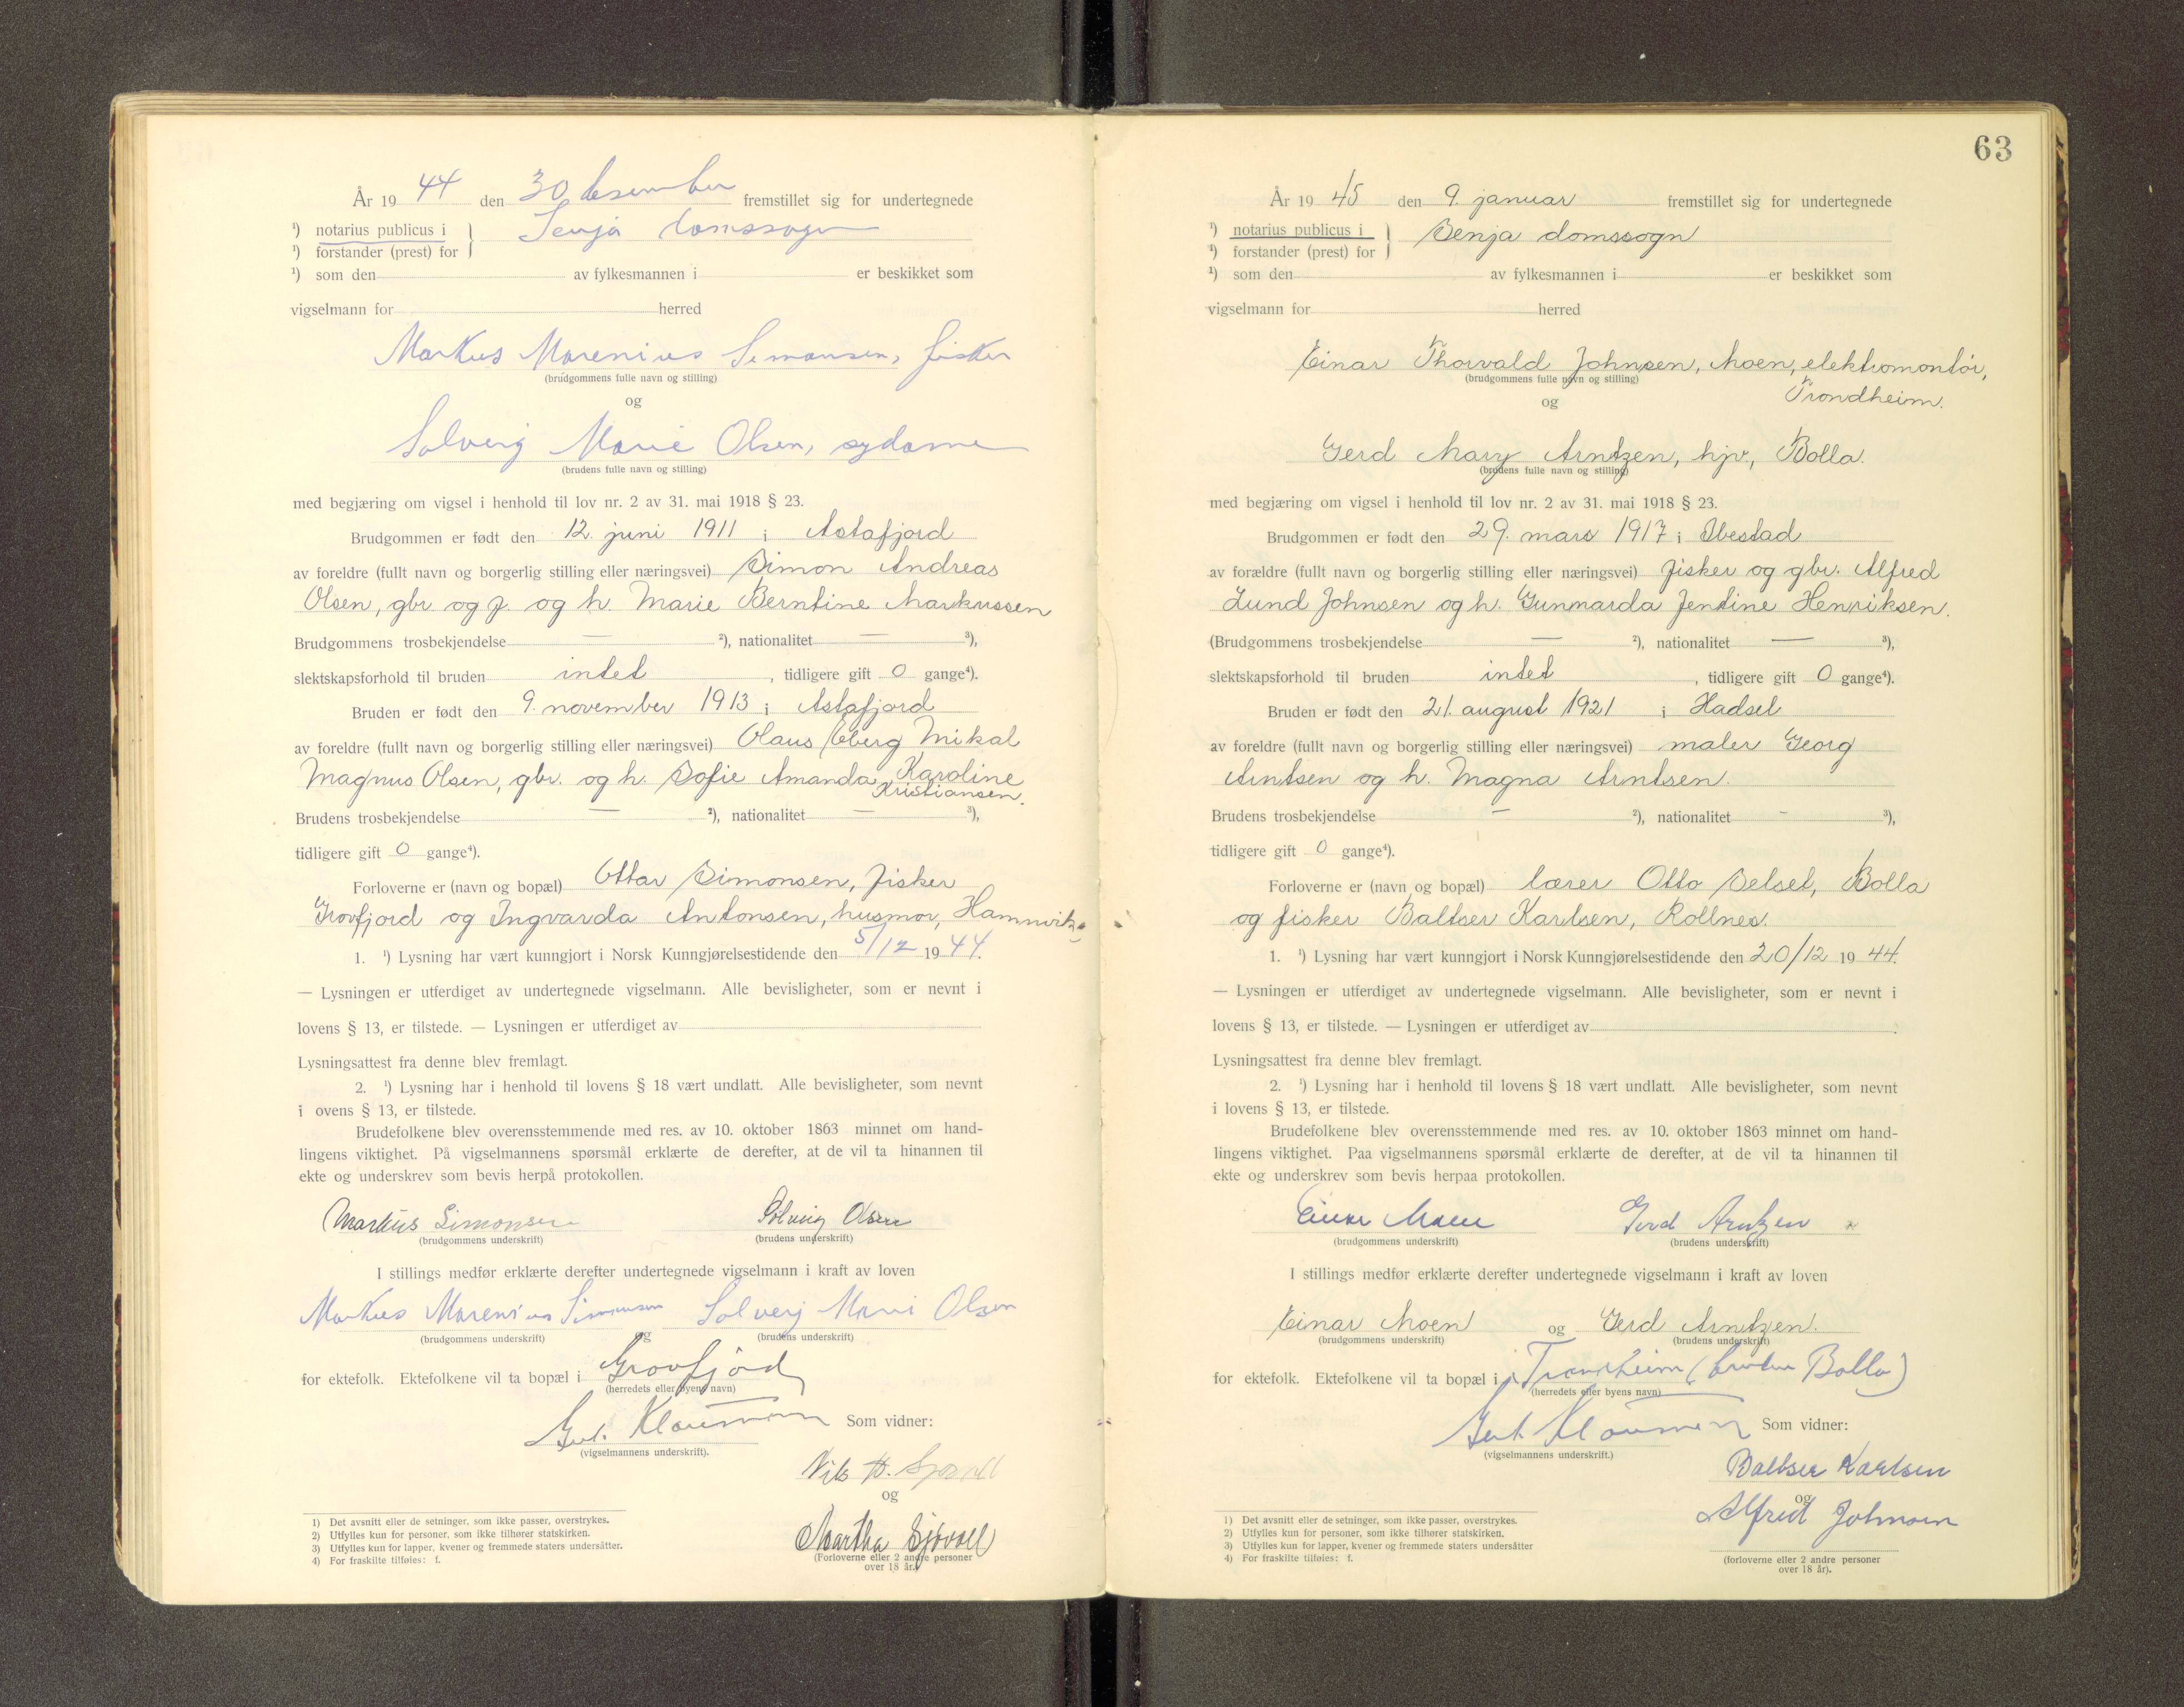 År 19 44 den 30 desember fremstillet sig for undertegnede
¹) notarius publicus i } Senja domssogn
¹) forstander (prest) for
¹) som den av fylkesmannen i er beskikket som
vigselmann for herred
Markus Marenius Simonsen, fisker
(brudgommens fulle navn og stilling)
og
Solveig Marie Olsen, sydame
(brudens fulle navn og stilling)
med begjæring om vigsel i henhold til lov nr. 2 av 31. mai 1918 § 23.
Brudgommen er født den 12. juni 1911 i Astafjord
av foreldre (fullt navn og borgerlig stilling eller næringsvei) Simon Andreas
Olsen, gbr. og f. og h. Marie Berntine Markussen
Brudgommens trosbekjendelse — ²), nationalitet — ³),
slektskapsforhold til bruden intet, tidligere gift 0 gange⁴).
Bruden er født den 9. november 1913 i Astafjord
av foreldre (fullt navn og borgerlig stilling eller næringsvei) Olaus Eberg Mikal
Magnus Olsen, gbr. og h. Sofie Amanda Karoline
Kristiansen.
Brudens trosbekjendelse — ²), nationalitet — ³),
tidligere gift 0 gange⁴).
Forloverne er (navn og bopæl) Ottar Simonsen, fisker
Grovfjord og Ingvarda Antonsen, husmor, Hamnvik.
1. ¹) Lysning har vært kunngjort i Norsk Kunngjørelsestidende den 5/12 1944.
— Lysningen er utferdiget av undertegnede vigselmann. Alle bevisligheter, som er nevnt i
lovens § 13, er tilstede. — Lysningen er utferdiget av
Lysningsattest fra denne blev fremlagt.
2. ¹) Lysning har i henhold til lovens § 18 vært undlatt. Alle bevisligheter, som nevnt
i ovens § 13, er tilstede.
Brudefolkene blev overensstemmende med res. av 10. oktober 1863 minnet om hand-
lingens viktighet. På vigselmannens spørsmål erklærte de derefter, at de vil ta hinannen til
ekte og underskrev som bevis herpå protokollen.
Markus Simonsen Solveig Olsen
(brudgommens underskrift) (brudens underskrift)
I stillings medfør erklærte derefter undertegnede vigselmann i kraft av loven
Markus Marenius Simonsen og Solveig Marie Olsen
(brudgommens underskrift) (brudens underskrift)
for ektefolk. Ektefolkene vil ta bopæl i Grovfjord
(herredets eller byens navn)
Klaussen Som vidner:
(vigselmannens underskrift).
Nils H. Sjovoll
og
Martha Sjövoll
(Forloverne eller 2 andre personer
over 18 år.)
1) Det avsnitt eller de setninger, som ikke passer, overstrykes.
2) Utfylles kun for personer, som ikke tilhører statskirken.
3) Utfylles kun for lapper, kvener og fremmede staters undersåtter.
4) For fraskilte tilføies: f.
63
År 19 45 den 9. januar fremstillet sig for undertegnede
¹) notarius publicus i } Senja domssogn
¹) forstander (prest) for
¹) som den av fylkesmannen i er beskikket som
vigselmann for herred
Einar Thorvald Johnsen, Moen, elektromontör,
(brudgommens fulle navn og stilling)
Trondheim.
og
Gerd Mary Arntzen, hjv., Bolla.
(brudens fulle navn og stilling)
med begjæring om vigsel i henhold til lov nr. 2 av 31. mai 1918 § 23.
Brudgommen er født den 29. mars 1917 i Ibestad
av forældre (fullt navn og borgerlig stilling eller næringsvei) fisker og gbr. Alfred
Lund Johnsen og h. Gunmarda Jentine Henriksen.
(Brudgommens trosbekjendelse — ²), nationalitet — ³),
slektskapsforhold til bruden intet, tidligere gift 0 gange⁴).
Bruden er født den 21. august 1921 i Hadsel
av foreldre (fullt navn og borgerlig stilling eller næringsvei) maler Georg
Arntsen og h. Magna Arntsen.
Brudens trosbekjendelse — ²), nationalitet - ³),
tidligere gift 0 gange⁴).
Forloverne er (navn og bopæl) lærer Otto Selset, Bolla
og fisker Baltser Karlsen, Rollnes.
1. ¹) Lysning har vært kunngjort i Norsk Kunngjørelsestidende den 20/12 1944.
— Lysningen er utferdiget av undertegnede vigselmann. Alle bevisligheter, som er nevnt i
lovens § 13, er tilstede. — Lysningen er utferdiget av .
Lysningsattest fra denne blev fremlagt.
2. ¹) Lysning har i henhold til lovens § 18 vært undlatt. Alle bevisligheter, som nevnt
i lovens § 13, er tilstede.
Brudefolkene blev overensstemmende med res. av 10. oktober 1863 minnet om hand-
lingens viktighet. Paa vigselmannens spørsmål erklærte de derefter, at de vil ta hinannen til
ekte og underskrev som bevis herpaa protokollen.
Einar Moen Gerd Arntzen
(brudgommens underskrift) (brudens underskrift)
I stillings medfør erklærte derefter undertegnede vigselmann i kraft av loven
Einar Moen og Gerd Arntzen.
(brudgommens underskrift) (brudens underskrift)
for ektefolk. Ektefolkene vil ta bopæl i Trondheim (bruden Bolla)
(herredets eller byens navn)
Klaussen Som vidner:
(vigselmannens underskrift.)
Baltser Karlsen
og
Alfred Johnsen
(forloverne eller 2 andre personer
over 18 år).
1) Det avsnitt eller de setninger, som ikke passer, overstrykes.
2) Utfylles kun for personer, som ikke tilhører statskirken.
3) Utfylles kun for lapper, kvener og fremmede staters undersåtter
4) For fraskilte tilføies: f.